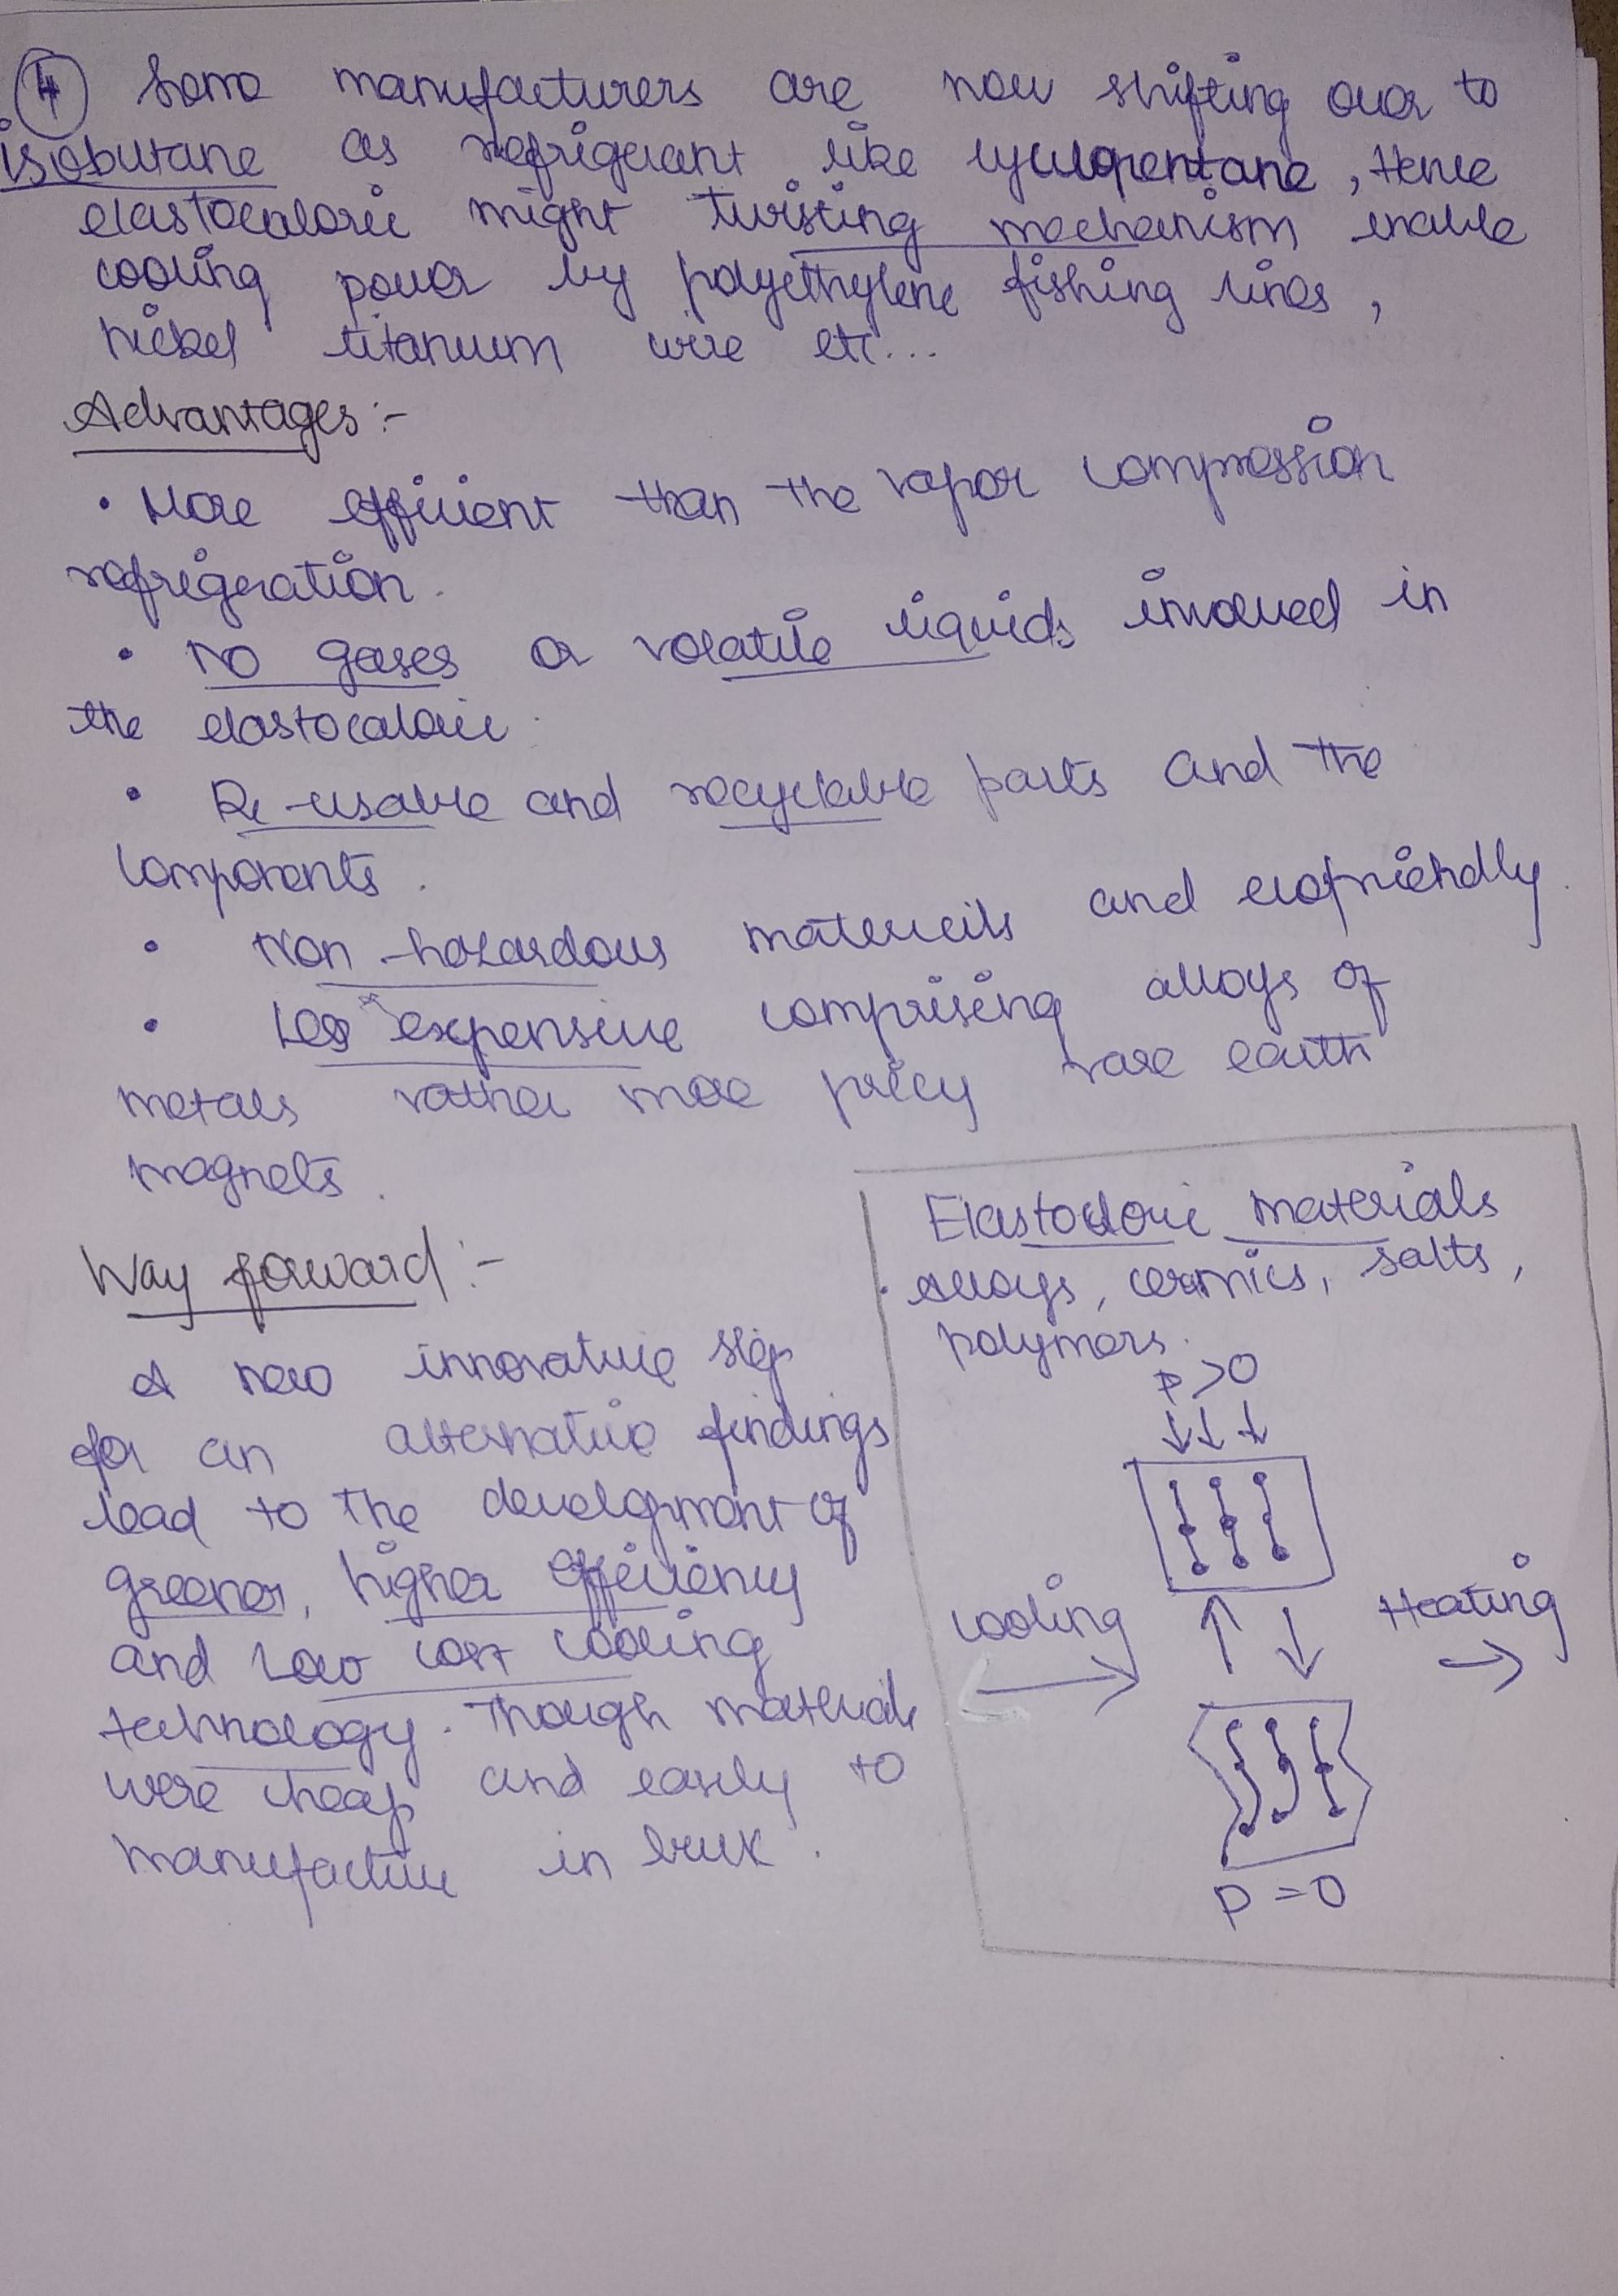 4 Some manufacturers are now shifting over to
isobutane as refrigerant like cyclopentane, Hence
elastocaloric might twisting mechanism enable
cooling power by polyethylene fishing lines,
nickel titanium wire etc...
Advantages:-
• More efficient than the vapor compression
refrigeration.
• No gases or volatile liquids involved in
the elastocaloric.
• Re-usable and recyclable parts and the
components.
• Non-hazardous materials and ecofriendly.
• Less expensive comprising alloys of
metals rather more pricy rare earth
magnets.
Way forward:-
A new innovative step
for an alternative findings
lead to the development of
greener, higher efficiency
and low cost cooling
technology. Though materials
were cheap and easily to
manufacture in bulk.
Elastocaloric materials
• alloys, ceramics, salts,
polymers.
P>0
cooling
Heating
P=0